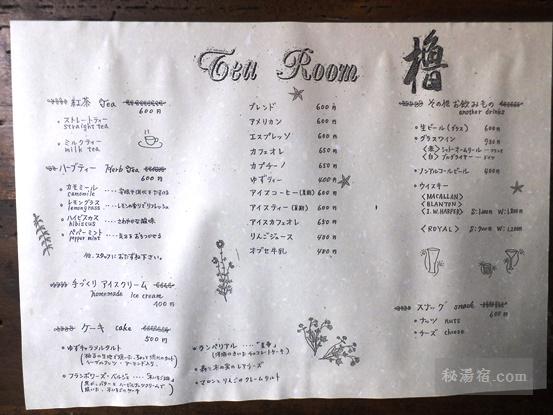 Tea Room 櫓
紅茶 Tea
600円
ストレートティー
straight tea
ミルクティー
milk tea
ハーブティー Herb tea
600円
カモミール
camomile
レモングラス
lemongrass
ハイビスカス
hibiscus
さわやかな酸味
ペパーミント
pepper mint
他、スタッフにおたずね下さい。
手づくり アイスクリーム
homemade ice cream
400円
ケーキ cake
500円
ゆずキャラメルタルト
フランボワーズ・ベルジュ
ブレンド 600円
アメリカン 600円
エスプレッソ 600円
カフェオレ 650円
カプチーノ 650円
ゆずティー 400円
アイスコーヒー 600円
アイスティー 600円
アイスカフェオレ 650円
りんごジュース 400円
オブセ牛乳 400円
ランペリアル
森と木の実のレアチーズ
マロンとりんごのクレームタルト
その他お飲みもの
another drinks
生ビール(グラス) 600円
グラスワイン
<赤>
<白>
ノンアルコールビール 400円
ウイスキー
<MACALLAN>
<BLANTON>
<I.W.HARPER>
<ROYAL>
スナック snack
600円
ナッツ nuts
チーズ cheese
秘湯宿.com